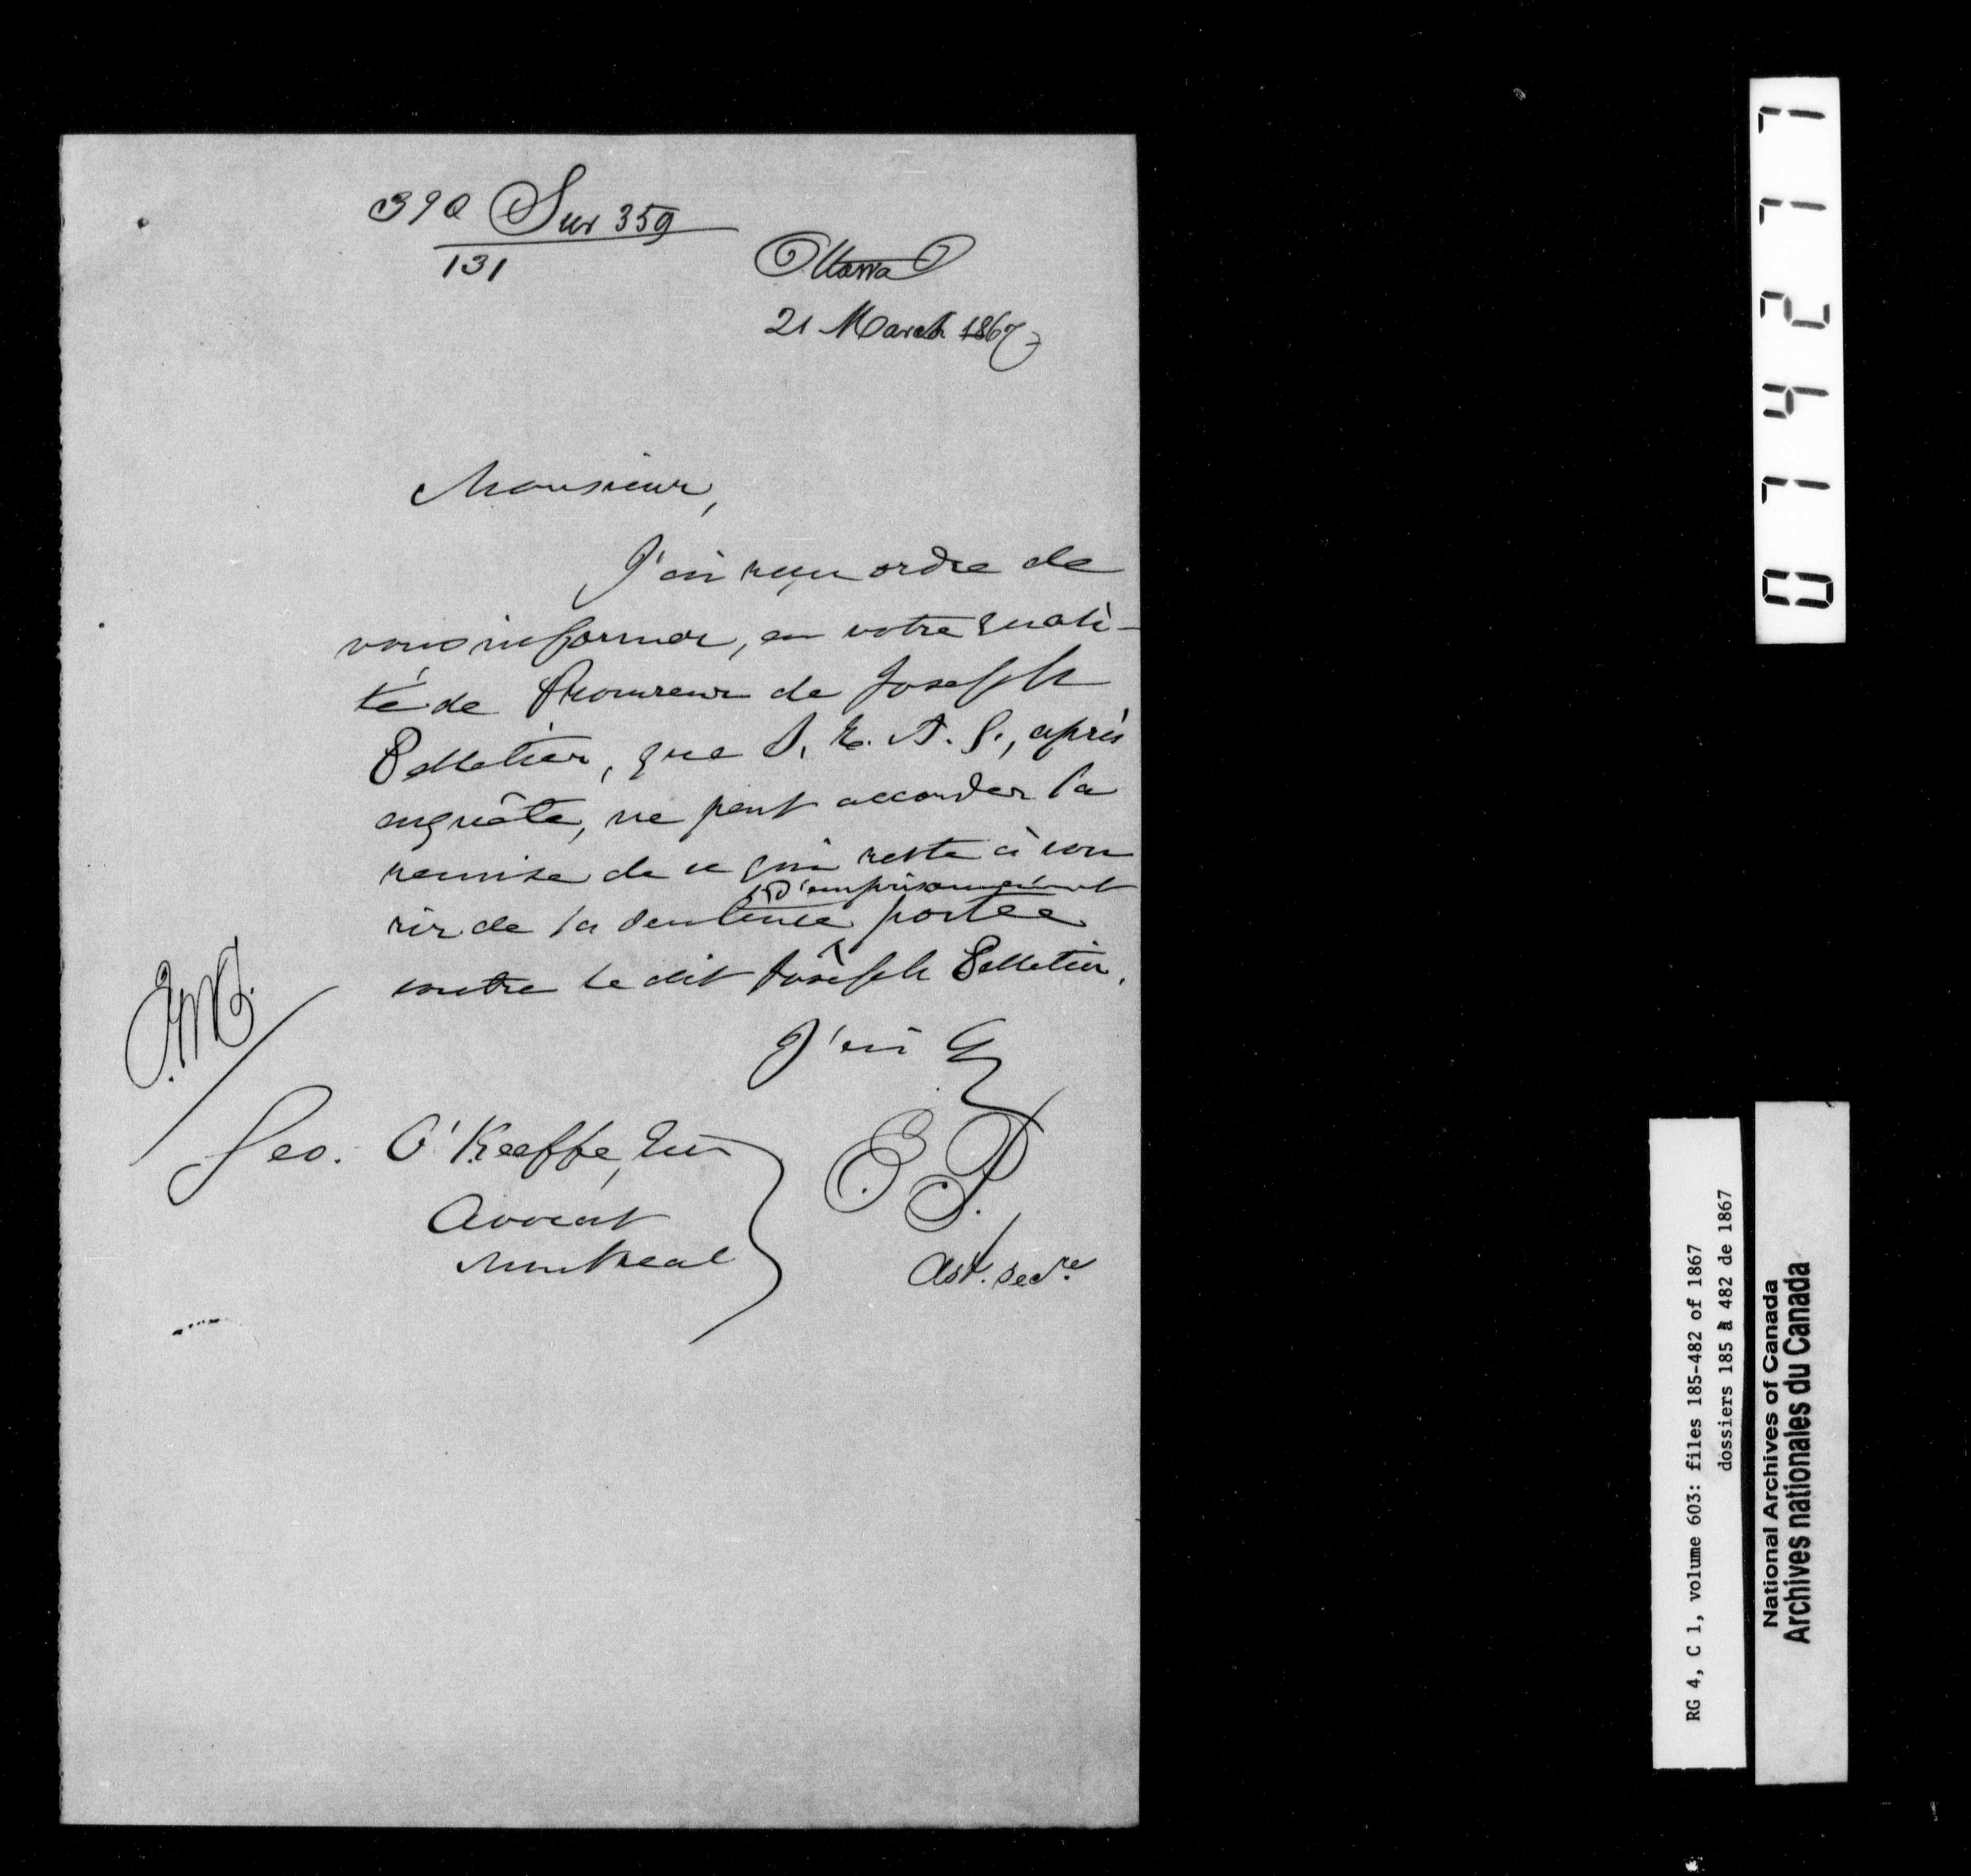 390 Sur 359
131
Ottawa
21 March 1867
Monsieur,
J'ai reçu ordre de
vous informer, en votre quali-
té de Procureur de Joseph
Pelletier, que S. E. A. G., après
enquête, ne peut accorder la
remise de ce qui reste à cou
rir de la sentence d'emprisonnement portée
contre le dit Joseph Pelletier.
J'ai &
Geo. O'Keeffe, Eur
Avocat
Montreal
E P.
Ast. Secre
0742777
RG 4, C 1, volume 603: files 185-482 of 1867
dossiers 185 à 482 de 1867
National Archives of Canada
Archives nationales du Canada